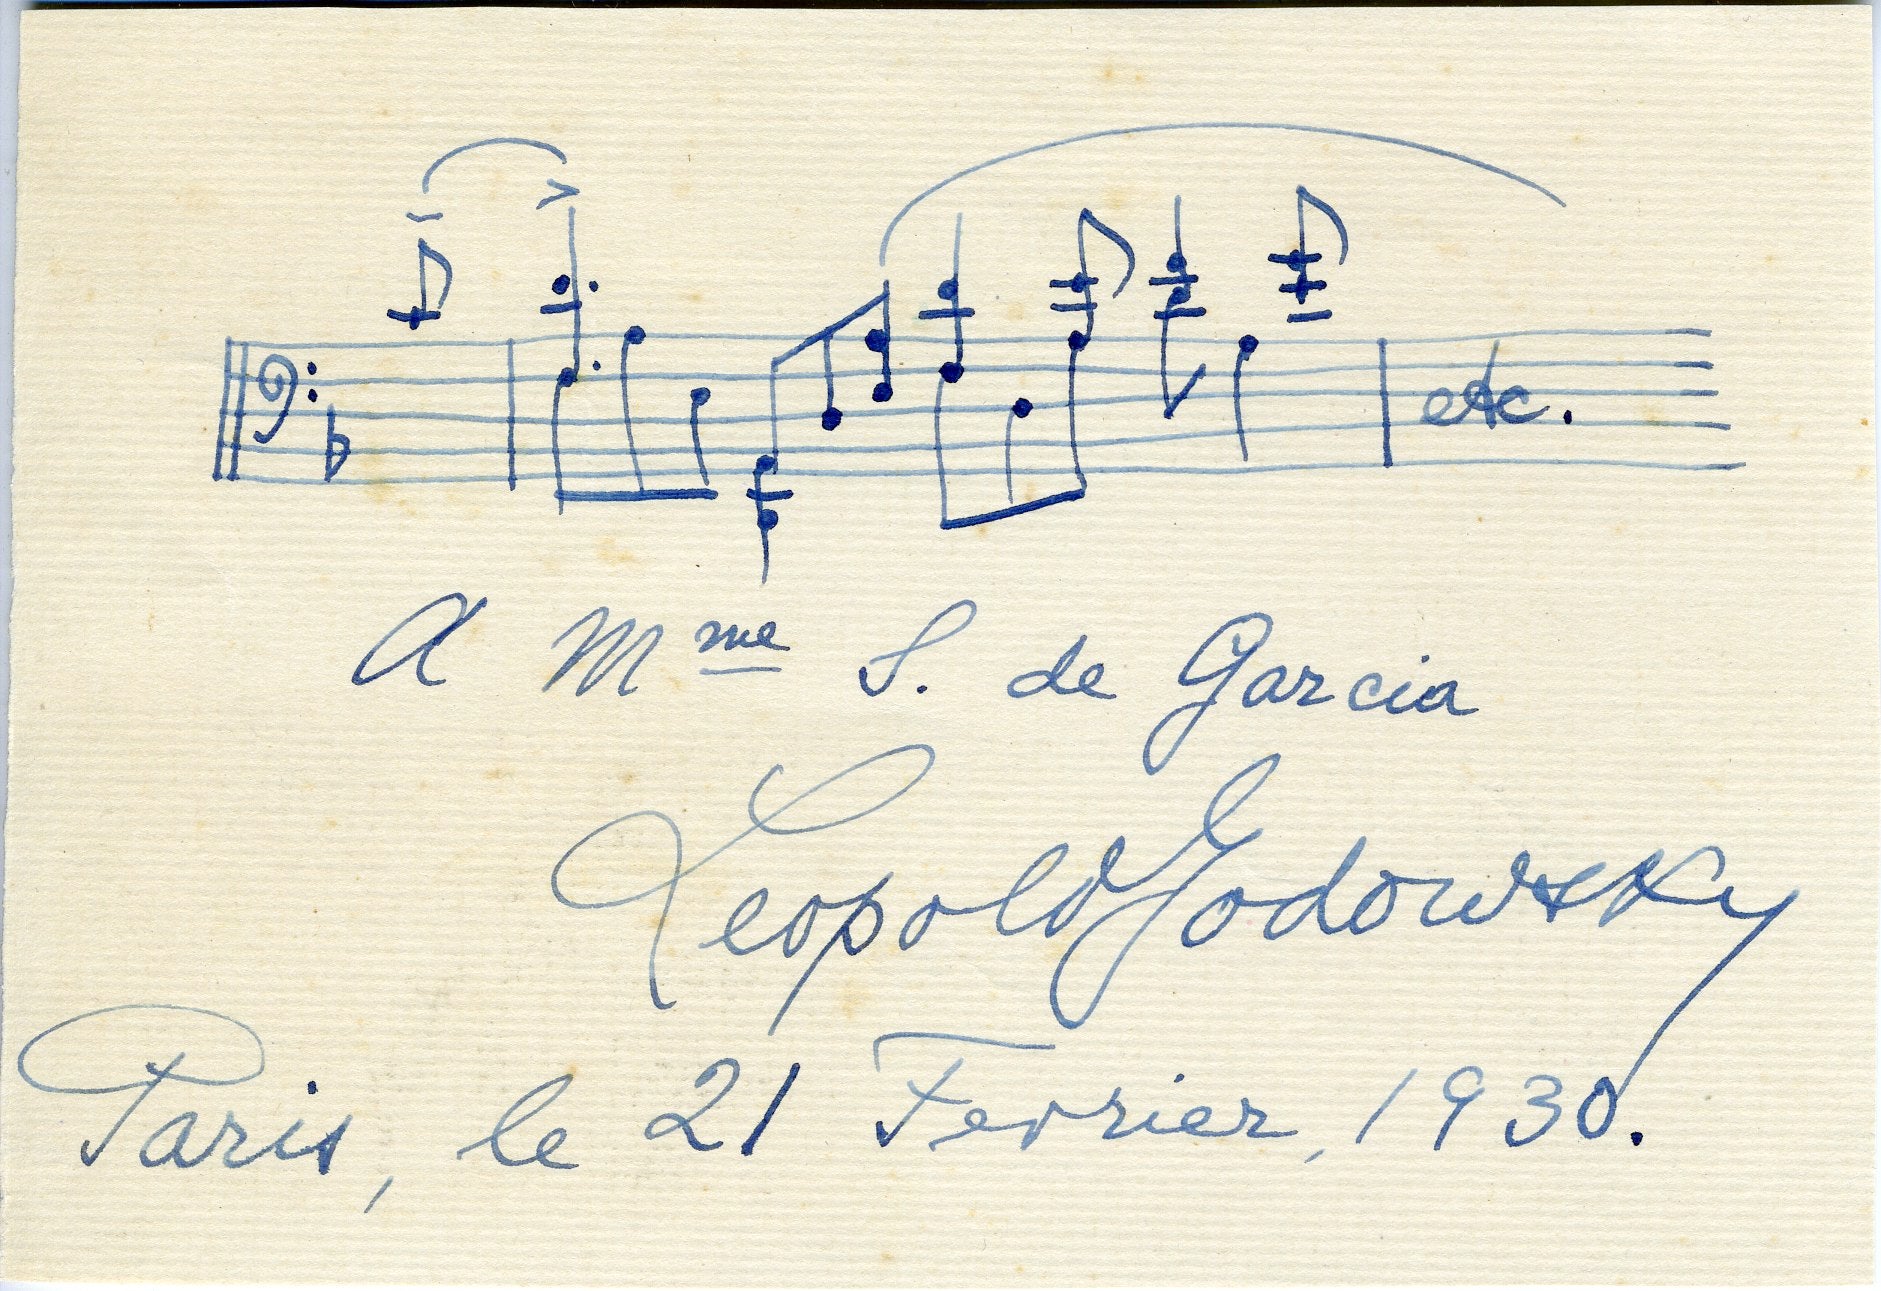 etc.
A Mme S. de Garcia
Leopold Godowsky
Paris, le 21 Fevrier, 1930.